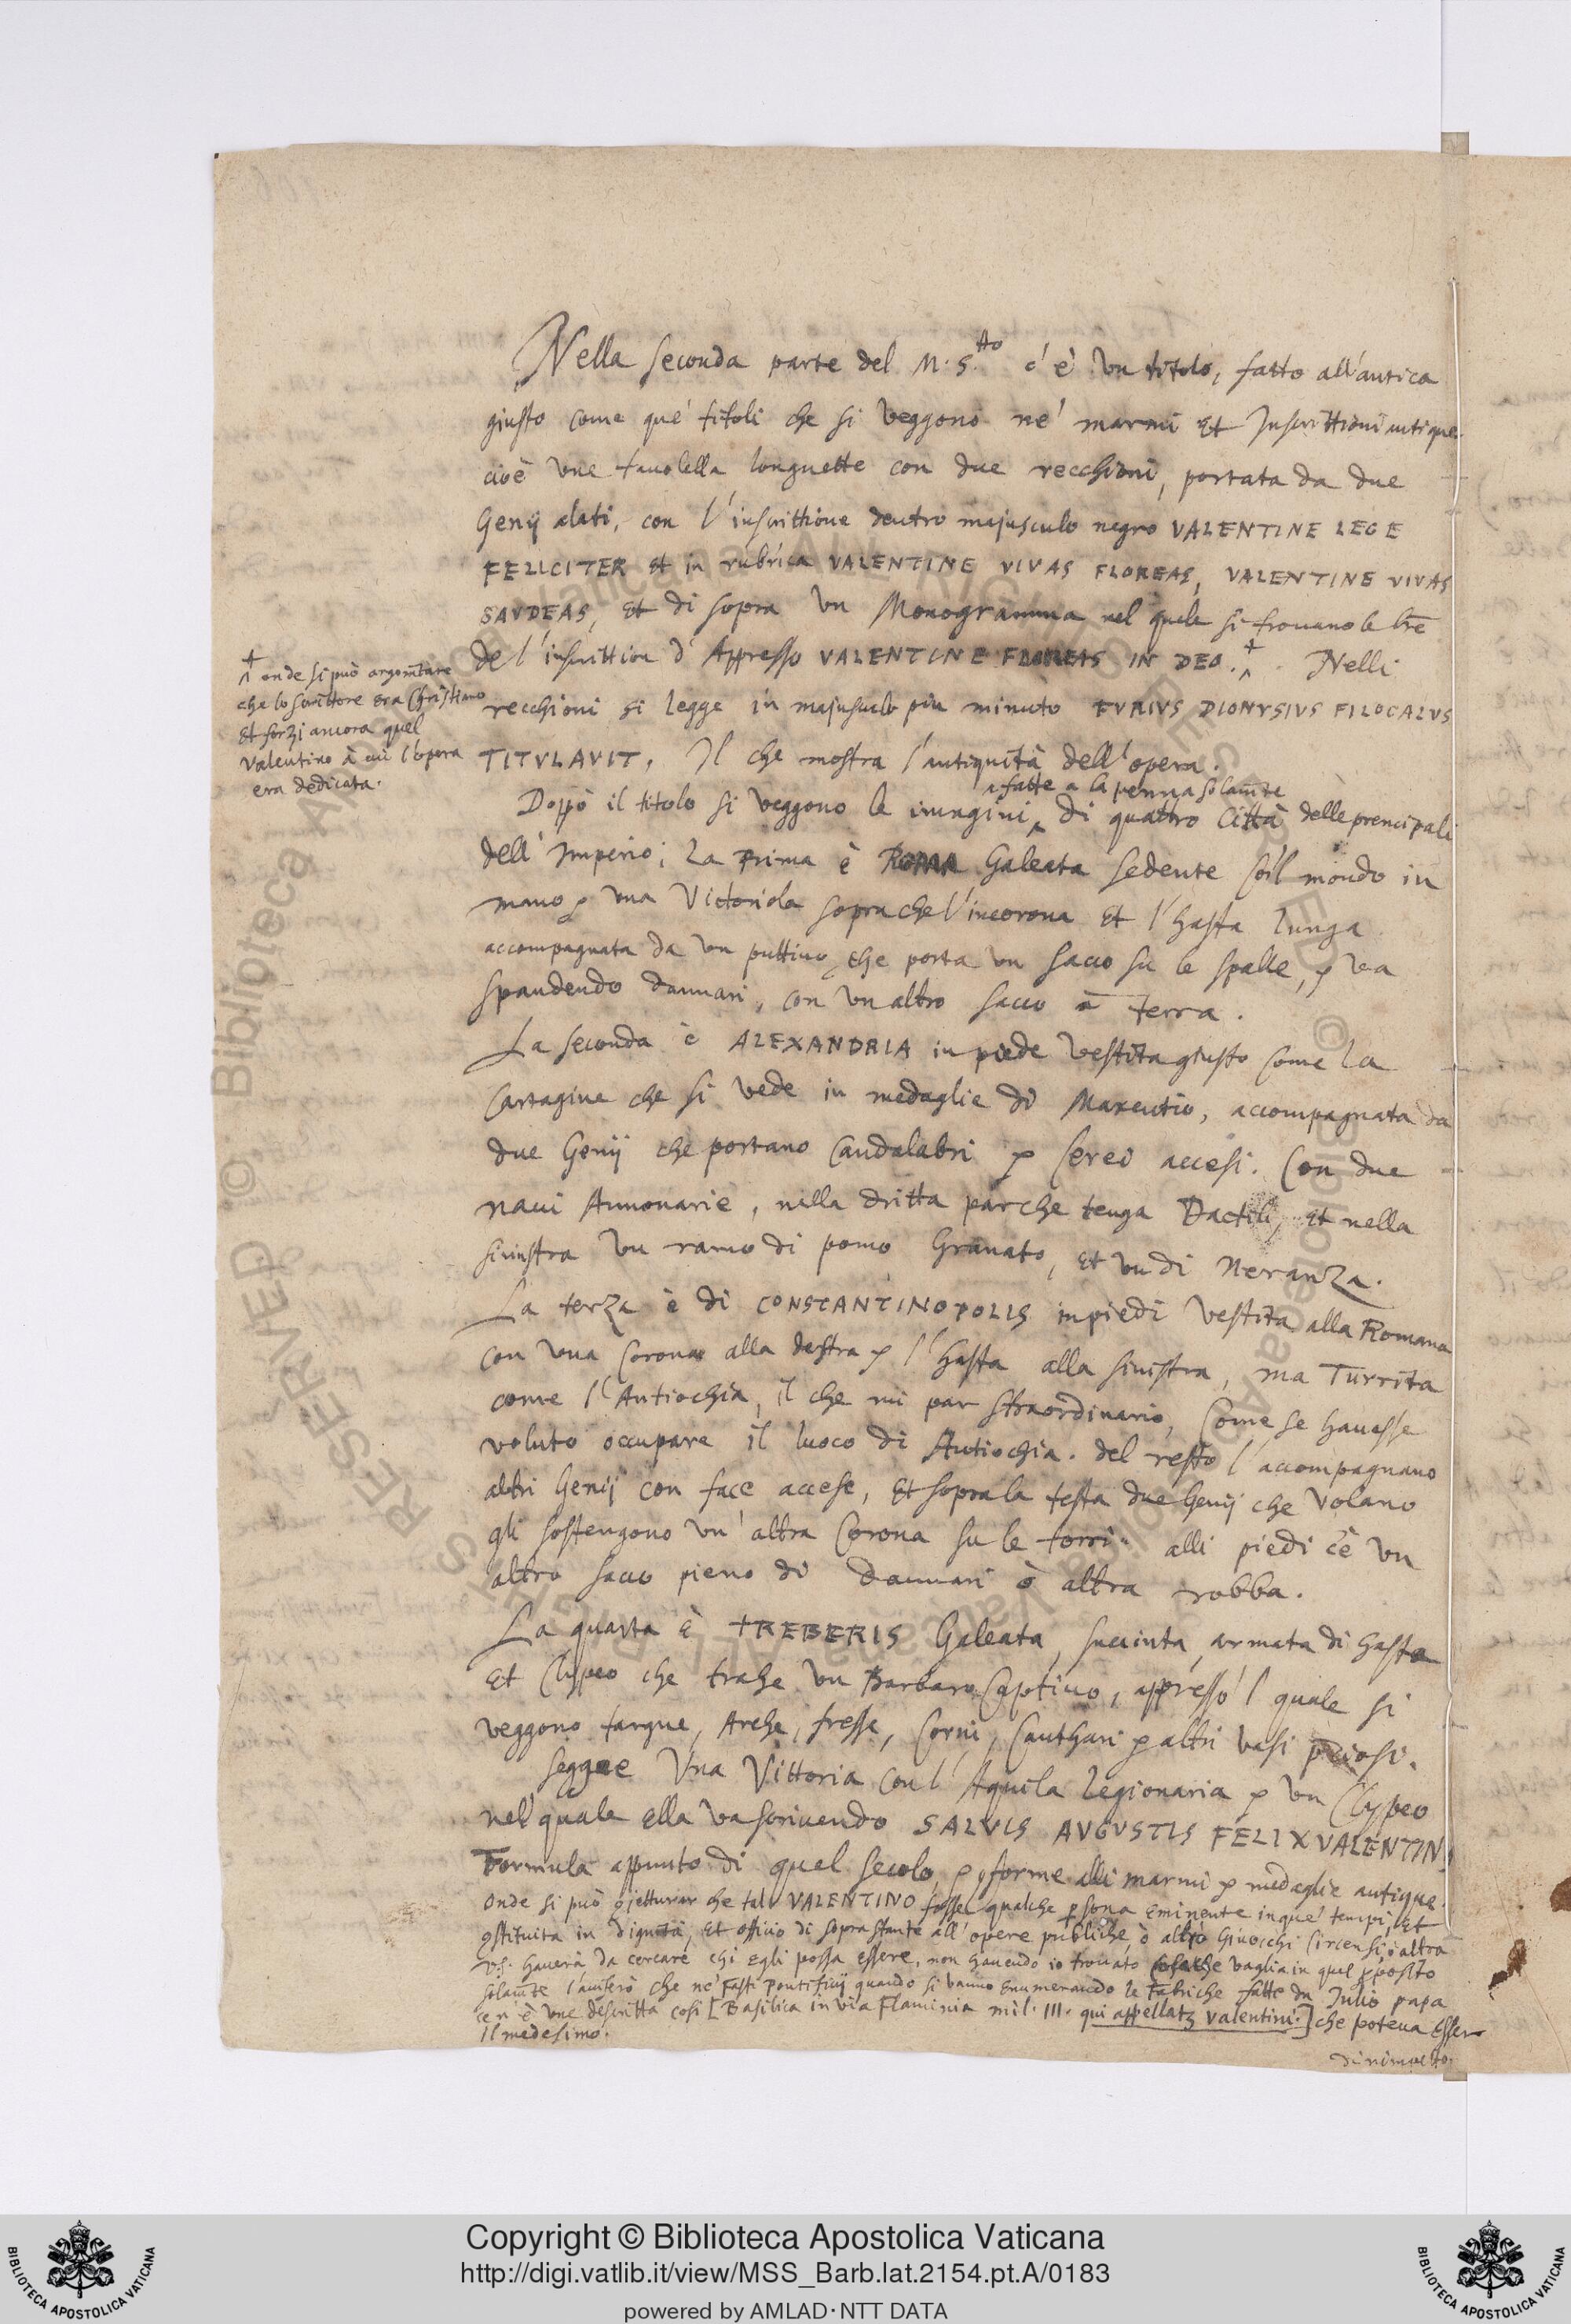 Nella seconda parte del M.S.tto c'è un titolo, fatto all'antica
giusto come que' titoli che si veggono ne' marmi et Inscrittioni antique
cioè une tauolella longuette con due recchioni, portata da due
Genij alati, con l'inscrittione dentro majusculo negro VALENTINE LEGE
FELICITER et in rubrica VALENTINE VIVAS FLOREAS, VALENTINE VIVAS
GAVDEAS, et di sopra un Monogramma nel quale si trouano le lre
del l'inscrittion d'Appresso VALENTINE FLOREAS IN DEO. Nelli
onde si può argomtare
che lo scrittore era Christiano
et forzi ancora quel
Valentino à cui l'opera
era dedicata.
recchioni si legge in majusculo piu minuto FVRIVS DIONYSIVS FILOCALVS
TITVLAVIT. Il che mostra l'antiquità dell'opera.
fatte a la penna solamte
Doppò il titolo si veggono le imagini di quattro Città delle prencipali
dell'Imperio; La Prima è ROMA Galeata sedente col mondo in
mano & una Victoriola sopra che l'incorona et l'hasta lunga
accompagnata da un puttino, che porta un sacco su le spalle, & va
spandendo dannari, con un altro sacco à terra.
La seconda è ALEXANDRIA in piede vestita giusto come la
Cartagine che si vede in medaglie di Maxentio, accompagnata da
due Genij che portano Candalabri & Cerei accesi. Con due
naui Annonarie, nella dritta par che tenga Dactili, et nella
sinistra un ramo di pomo Granato, et un di Neranza.
La terza è di CONSTANTINOPOLIS in piedi vestita alla Romana
con una Corona alla destra & l'hasta alla sinistra, ma Turrita
come l'Antiochia, il che mi par straordinario, Come se hauesse
voluto occupare il luoco di Antiochia. del resto l'accompagnano
altri Genij con face accese, et sopra la testa due Genij che volano
gli sostengono un'altra Corona su le torri. alli piedi c'è un
altro sacco pieno di dannari ò altra robba.
La quarta è TREBERIS Galeata, succinta, armata di hasta
et Clypeo che trahe un Barbaro Captiuo, appresso'l quale si
veggono targue, Arche, fresse, Corni, Canthari & altri vasi ptiosi.
Segue Una Vittoria con l'Aquila legionaria & un Clypeo
nel quale ella va scriuendo SALVIS AVGVSTIS FELIX VALENTIN.
Formula appunto di quel secolo, & 9forme alli marmi & medaglie antique.
Onde si può 9jetturar che tal VALENTINO fosse qualche psona eminente in que' tempi, et
9stituita in dignità, et officio di soprastante all'opere publiche, ò altro Giuocchi Circensi, ò altro
V.S. hauerà da cercare chi egli possa essere, non hauendo io trouato cosa che vaglia in quel pposito
solamte l'auiserò che ne' Fasti Pontificij quando si vanno enumerando le Fabriche fatte da Julio papa
ce n'è une descritta cosi [Basilica in via Flaminia mil. III. qui appellatz Valentini.] che poteua esser
il medesimo.
Copyright © Biblioteca Apostolica Vaticana
http://digi.vatlib.it/view/MSS_Barb.lat.2154.pt.A/0183
powered by AMLAD·NTT DATA
BIBLIOTECA APOSTOLICA VATICANA
BIBLIOTECA APOSTOLICA VATICANA